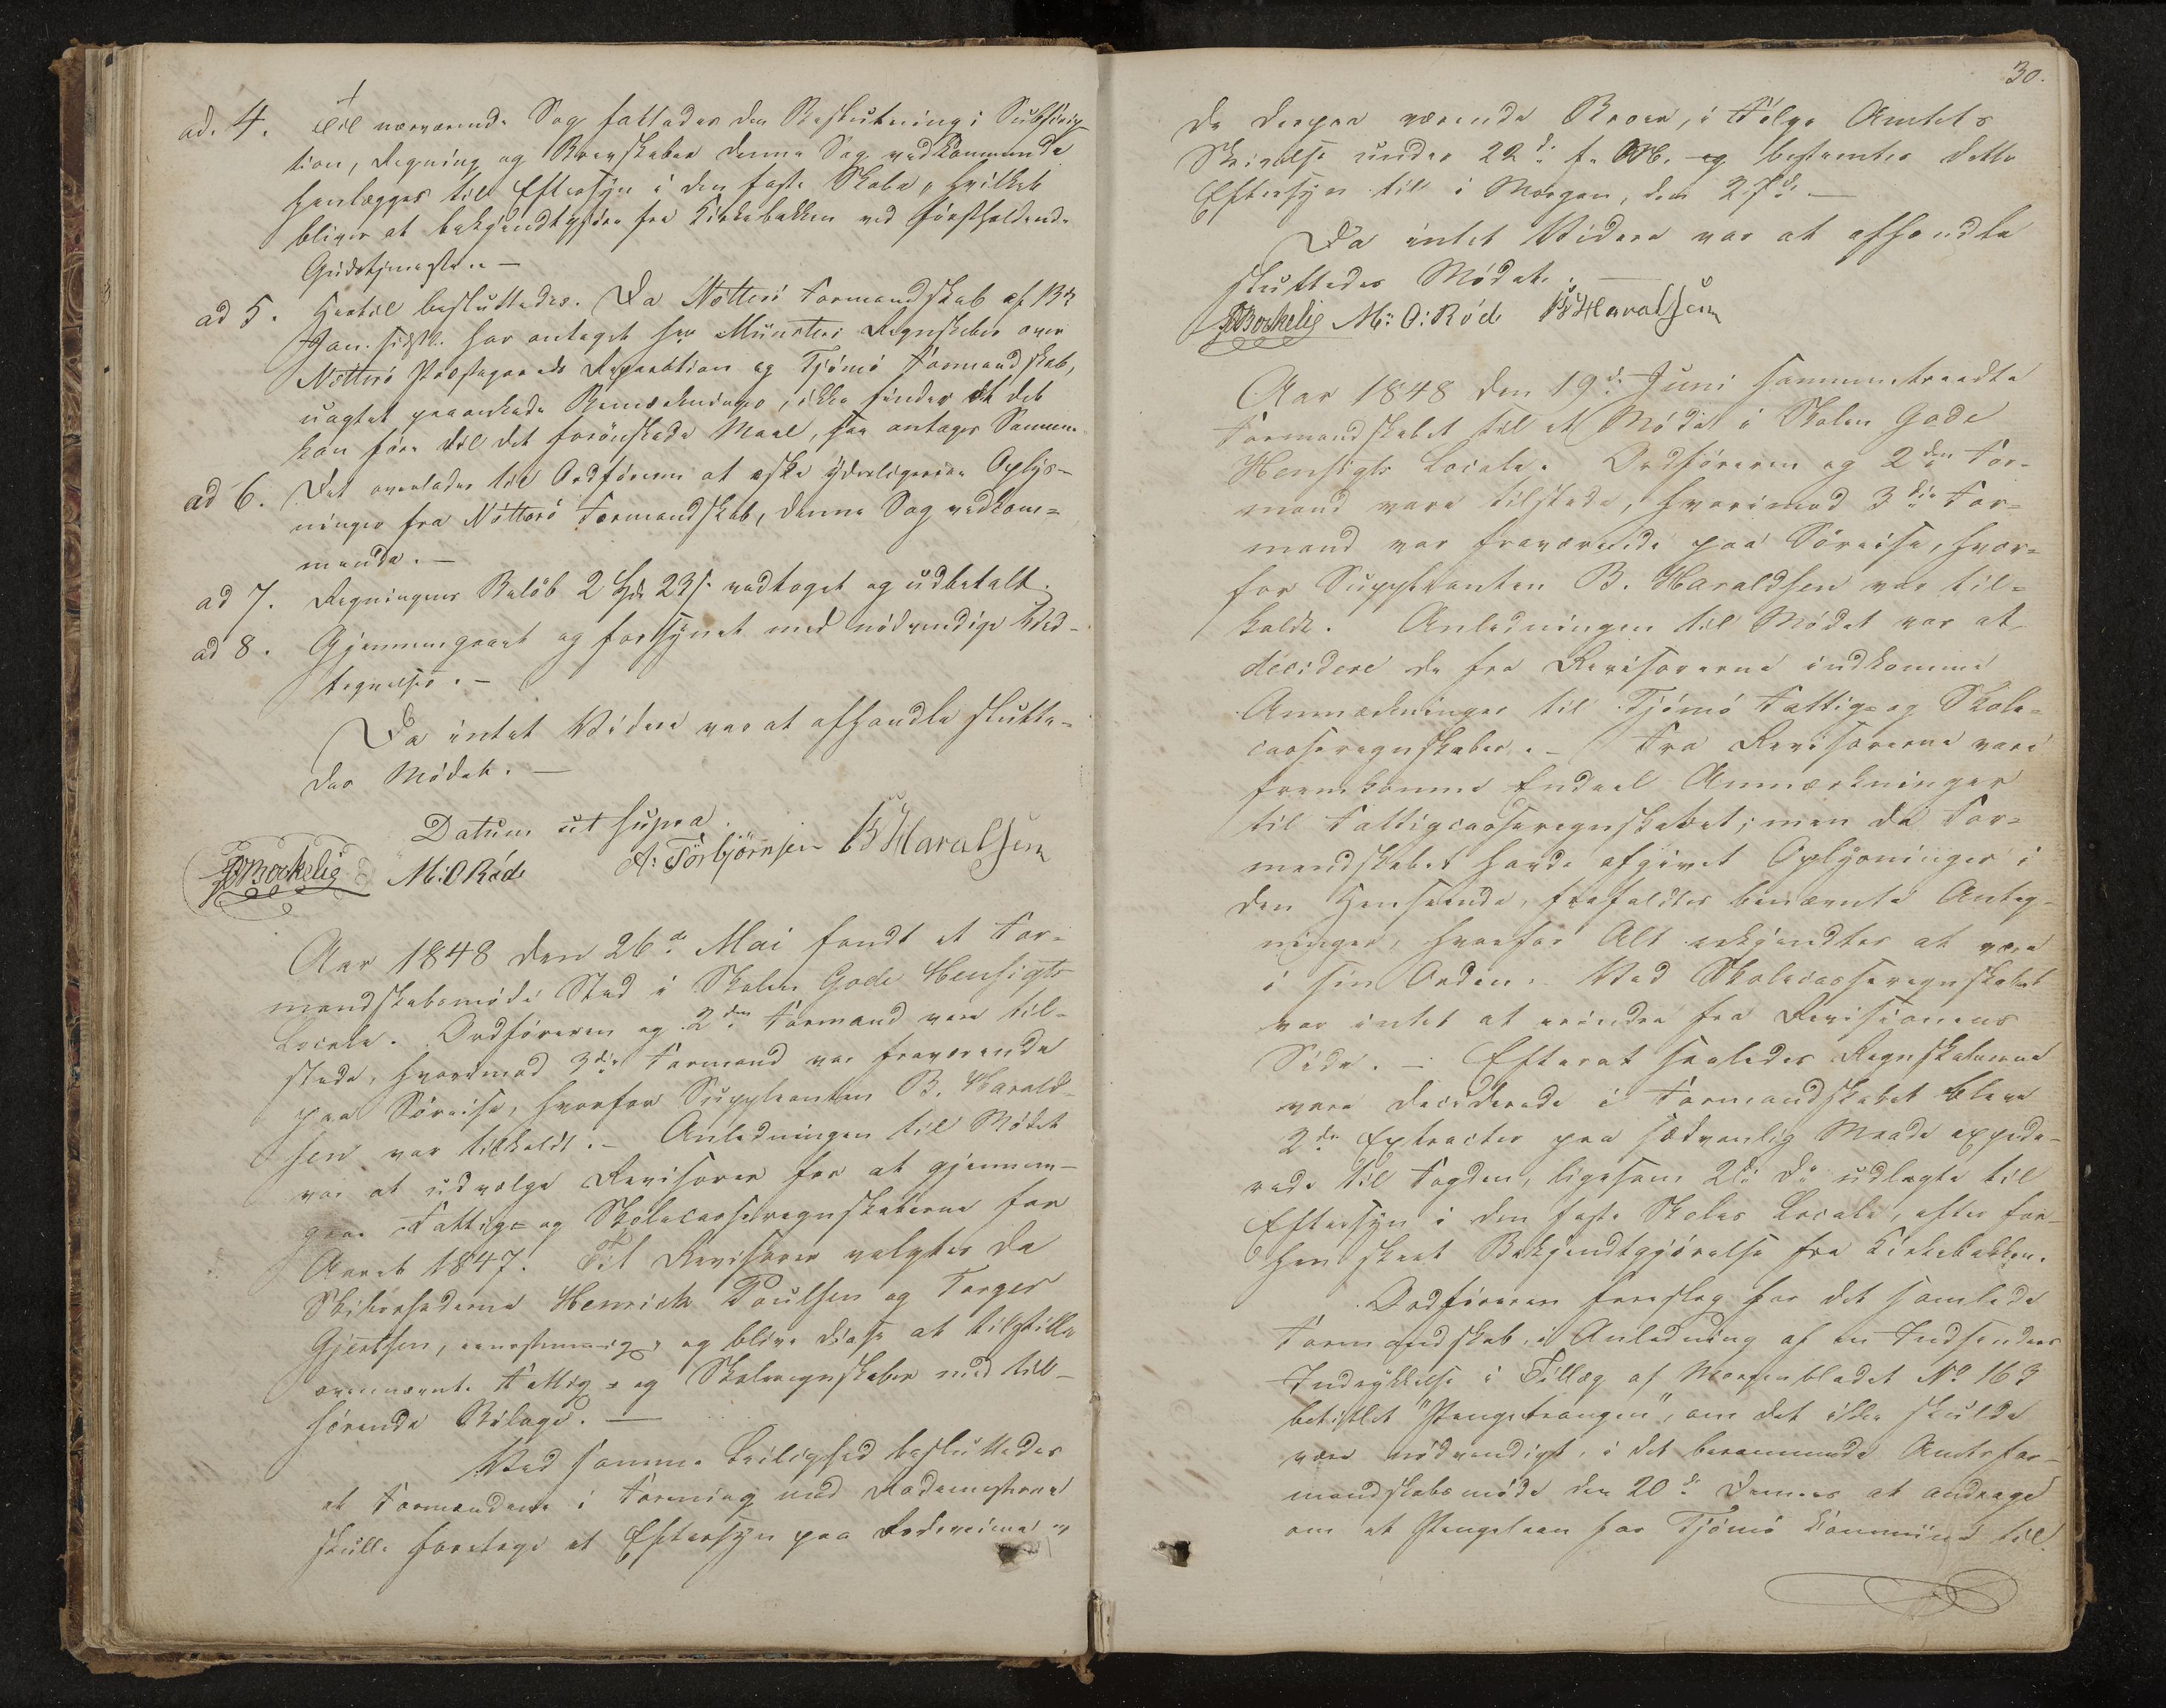 ad. 4. Til nærværende Sag fattedes den Beslutning: Subskrip
tion, Regning og Brevskaber denne Sag vedkommende
henlægges til Eftersyn i den faste Skole, hvilket
bliver at bekjendtgjøre fra Kirkebakken ved førstholdende
Gudstjeneste. —
ad 5. Hertil besluttedes. Da Nötterö Formandskab af 13de
Jan. sidstl. har antaget Hr Münsters Regnskaber over
Nötterö Præstegaards Reparation og Tjömö Formandskab,
uagtet paaankede Bemærkninger, ikke finder at det
kan føre til det forønskede Maal, saa antages Samme.
ad 6. Det overlades til Ordføreren at æske yderligere Oplys-
ninger fra Nötterö Formandskab, denne Sag vedkom=
mende. —
ad 7. Regningens Beløb 2 Spd 23 s. vedtaget og udbetalt.
ad 8. Gjennemgaaet og forsynet med nødvendige Ved-
tegnelser. —
Da intet Videre var at afhandle slutte-
des Mødet. —
Datum ut supra.
Bockelie M: O Röd A: Torbjörnsen B Haralsen
Aar 1848 den 26de Mai fandt et For-
mandskabsmøde Sted i Skolen Gode Hensigts
Locale. Ordføreren og 2den Formand vare til-
stede, hvorimod 3die Formand var fraværende
paa Søreise, hvorfor Suppleanten B. Harald-
sen var tilkaldt. — Anledningen til Mødet
var at udvælge Revisorer for at gjennem-
gaae Fattig- og Skolecasseregnskaberne for
Aaret 1847. Til Revisorer valgtes da
Skibsrhederne Henrich Poulsen og Torger
Gjertsen, eenstemmig, og blive disse at tilstille
ovennævnte Fattig- og Skoleregnskaber med till-
hørende Bilage. —
Ved samme Leilighed besluttedes
at Formændene i Forening med Rodemesterne
skulle foretage et Eftersyn paa Rodeveiene og
30.
de derpaa værende Broer, i Følge Amtets
Skrivelse under 22de f. M. og bestemtes dette
Eftersyn til i Morgen, den 27de —
Da intet Videre var at afhandle
sluttedes Mødet. —
Bockelie M: O: Röd B Haralsen
Aar 1848 den 19de Juni sammentraadte
Formandskabet til et Møde i Skolen Gode
Hensigts Locale. Ordføreren og 2den For-
mand vare tilstede, hvorimod 3die For=
mand var fraværende paa Søreise, hvor=
for Suppleanten B. Haraldsen var til=
kaldt. Anledningen til Mødet var at
decidere de fra Revisorerne indkomne
Anmærkninger til Tjömö Fattig- og Skole-
casseregnskaber. — Fra Revisorerne vare
fremkomne Endeel Anmærkninger
til Fattigcasseregnskabet; men da For=
mandskabet havde afgivet Oplysninger i
den Henseende, frafaldtes benævnte Anteg-
ninger, hvorfor Alt erkjendtes at være
i sin Orden. Ved Skolecasseregnskabet
var intet at erindre fra Revisionens
Side. — Efterat saaledes Regnskaberne
vare deciderede i Formandskabet bleve
2de Extracter paa sædvanlig Maade expede-
rede til Fogden, ligesom 2de do udlagte til
Eftersyn i den faste Skoles Locale, efter for-
hen skeet Bekjendtgjørelse fra Kirkebakken.
Ordføreren foreslog for det samlede
Formandskab, i Anledning af en Indsenders
Indrykkelse i Tillæg af Morgenbladet No 163
betitlet "Pengetrangen", om det ikke skulde
være nødvendigt, i det berammede Amtsfor-
mandskabsmøde den 20de dennes at andrage
om et Pengelaan for Tjömö Commune til